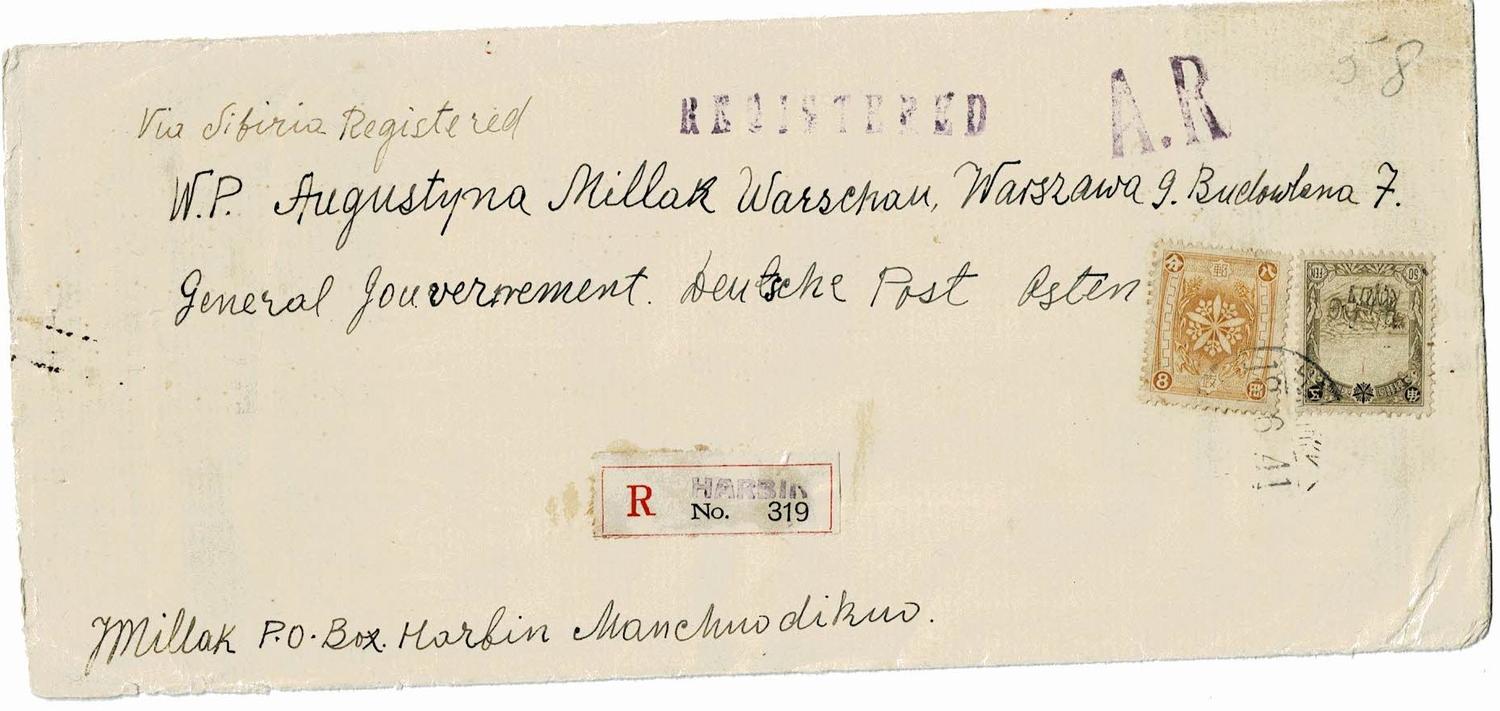 58
Via Sibiria Registered
REGISTERED
A.R
W.P. Augustyna Millak Warschau, Warszawa 9. Budowlana 7.
General Gouvernement. Deutsche Post Osten
分 郵 八
8 政
FEN 50
五 角
18 6 41
R HARBIN
No. 319
JMillak P.O. Box. Harbin Manchuodikuo.